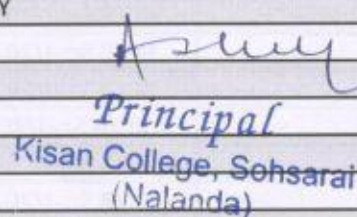 Y
Principal
Kisan College, Sohsarai
(Nalanda)